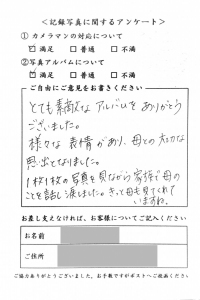 <記録写真に関するアンケート>
① カメラマンの対応について
☑ 満足 □ 普通 □ 不満
②写真アルバムについて
☑ 満足 □ 普通 □ 不満
ご自由にご意見をお書きください
とても素敵なアルバムをありがとう
ございました。
様々な表情があり、母との大切な
思い出となりました。
1枚1枚の写真を見ながら家族で母の
ことを話し涙しました。きっと母も見てくれて
いますね。
お差し支えなければ、お客様についてご記入ください
お名前
ご住所
ご協力ありがとうございました。お手数ですがポストへご投函ください